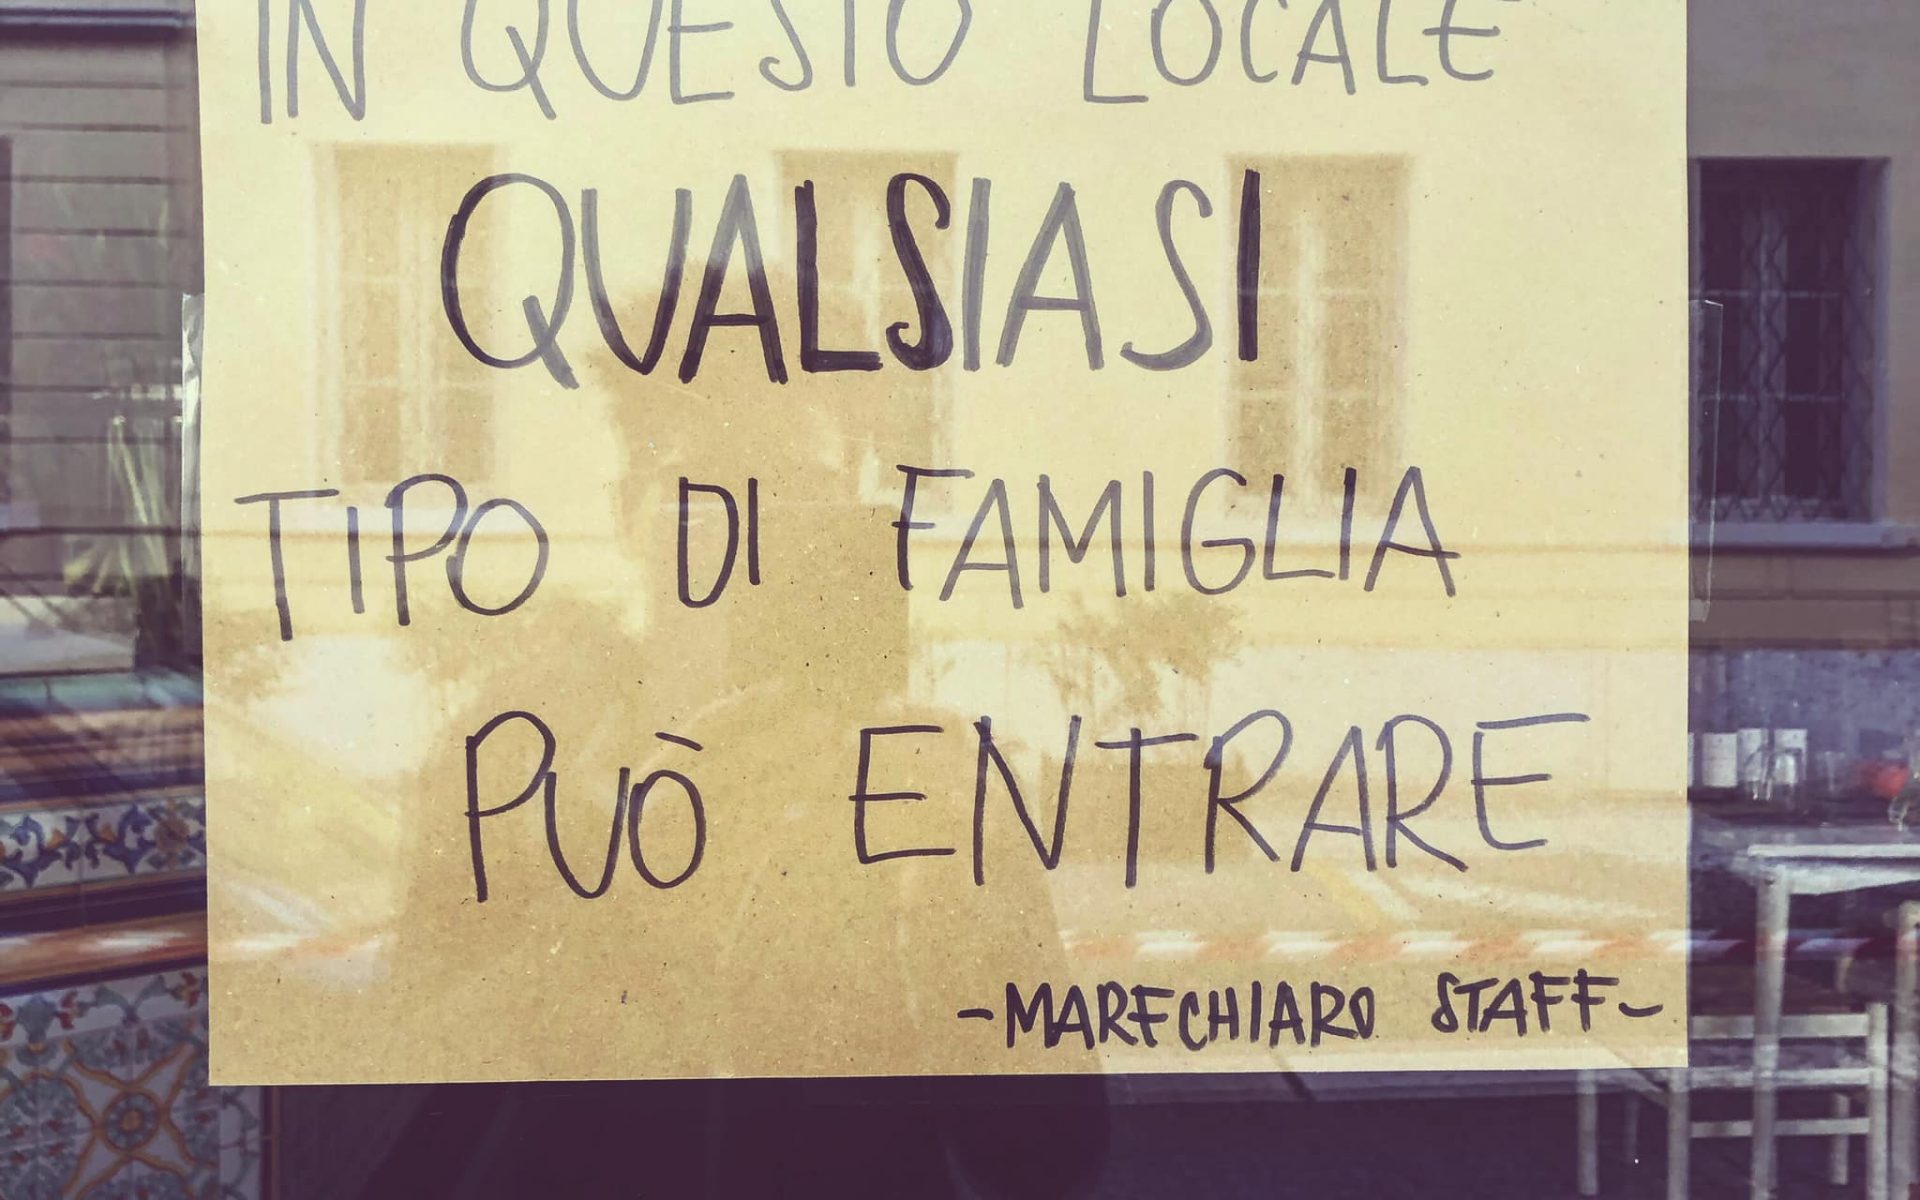 IN QUESTO LOCALE
QUALSIASI
TIPO DI FAMIGLIA
PUÒ ENTRARE
-MARECHIARO STAFF-